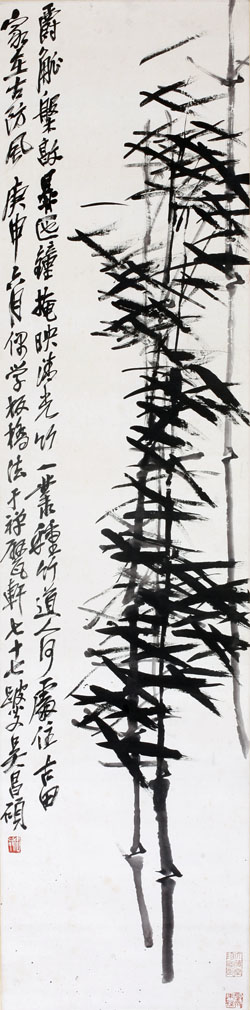 爵觚槃敦鼎匜鐘掩映清光竹一叢種竹道人何處住古田
家在古防風 庚申六月偶學板橋法于禪甓軒七十七跛叟吳昌碩